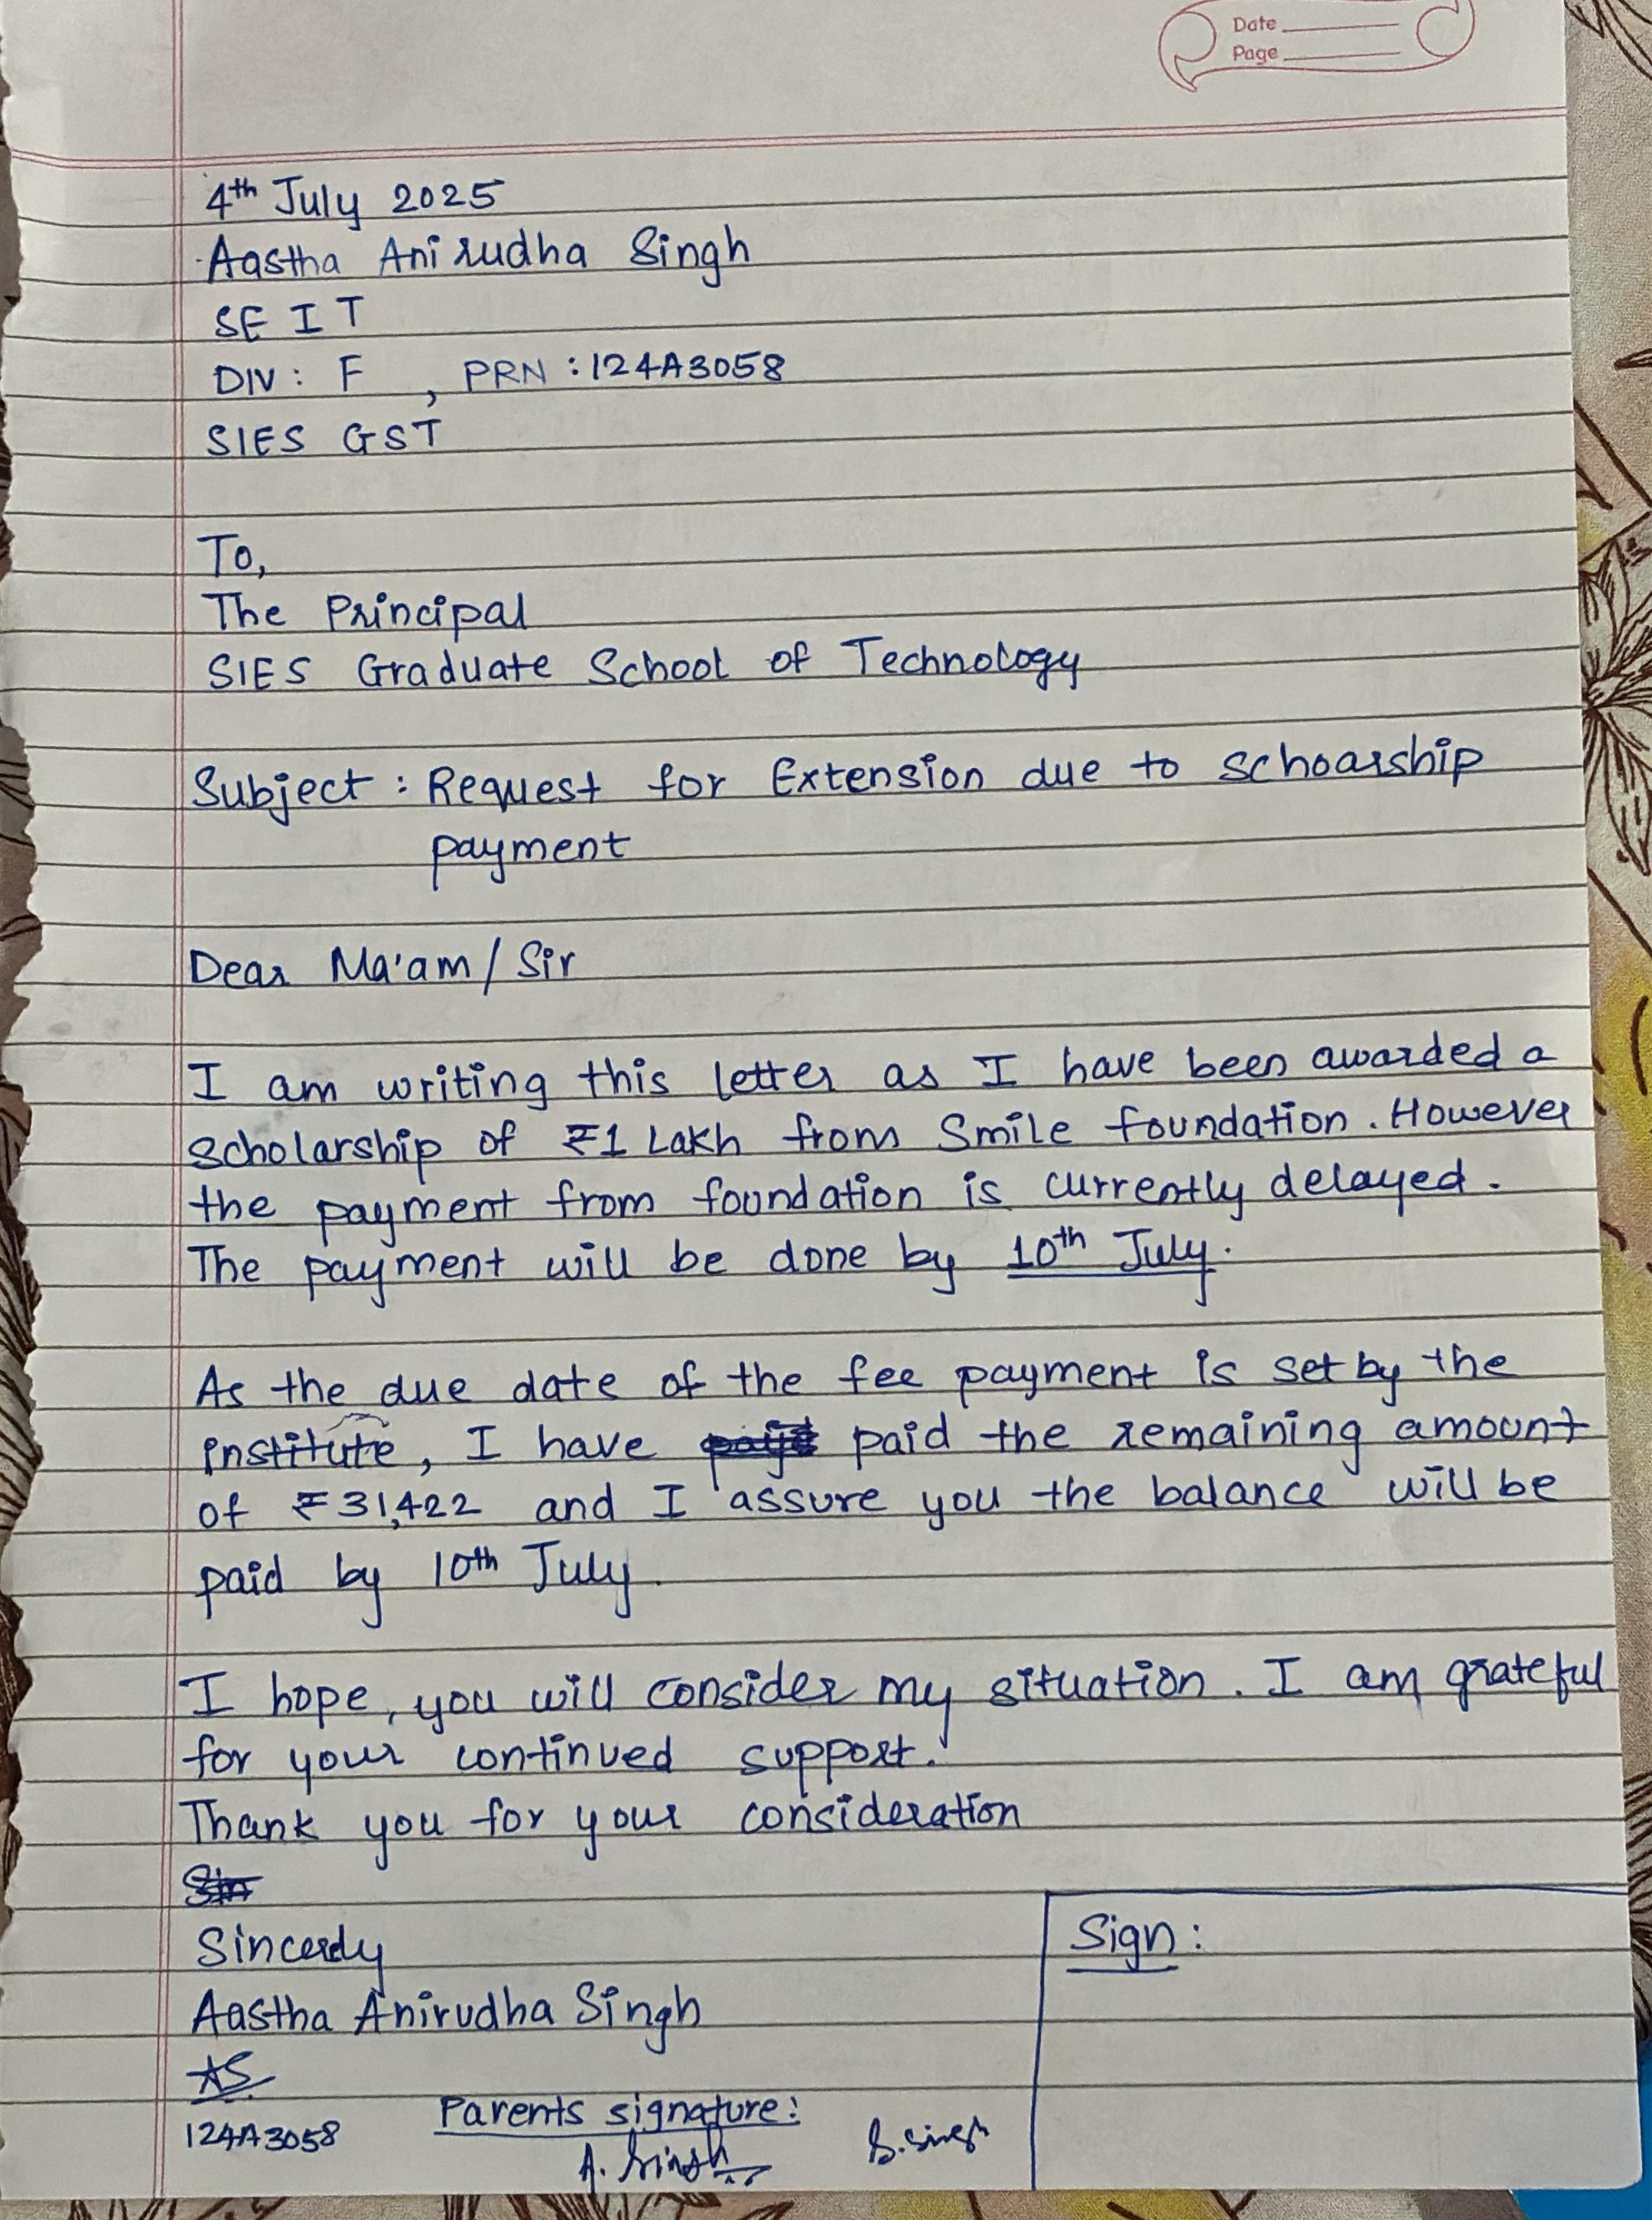 Date
Page
4th July 2025
Aastha Anirudha Singh
SE IT
DIV : F , PRN : 124A3058
SIES GST
To,
The Principal
SIES Graduate School of Technology
Subject : Request for Extension due to schoarship
payment
Dear Ma'am / Sir
I am writing this letter as I have been awarded a
scholarship of ₹1 Lakh from Smile foundation. However
the payment from foundation is currently delayed.
The payment will be done by 10th July.
As the due date of the fee payment is set by the
institute, I have paid the remaining amount
of ₹31,422 and I assure you the balance will be
paid by 10th July.
I hope, you will consider my situation. I am grateful
for your continued support.
Thank you for your consideration
Sincerely
Sign :
Aastha Anirudha Singh
AS
124A3058
Parents signature:
A. Singh
S. Singh